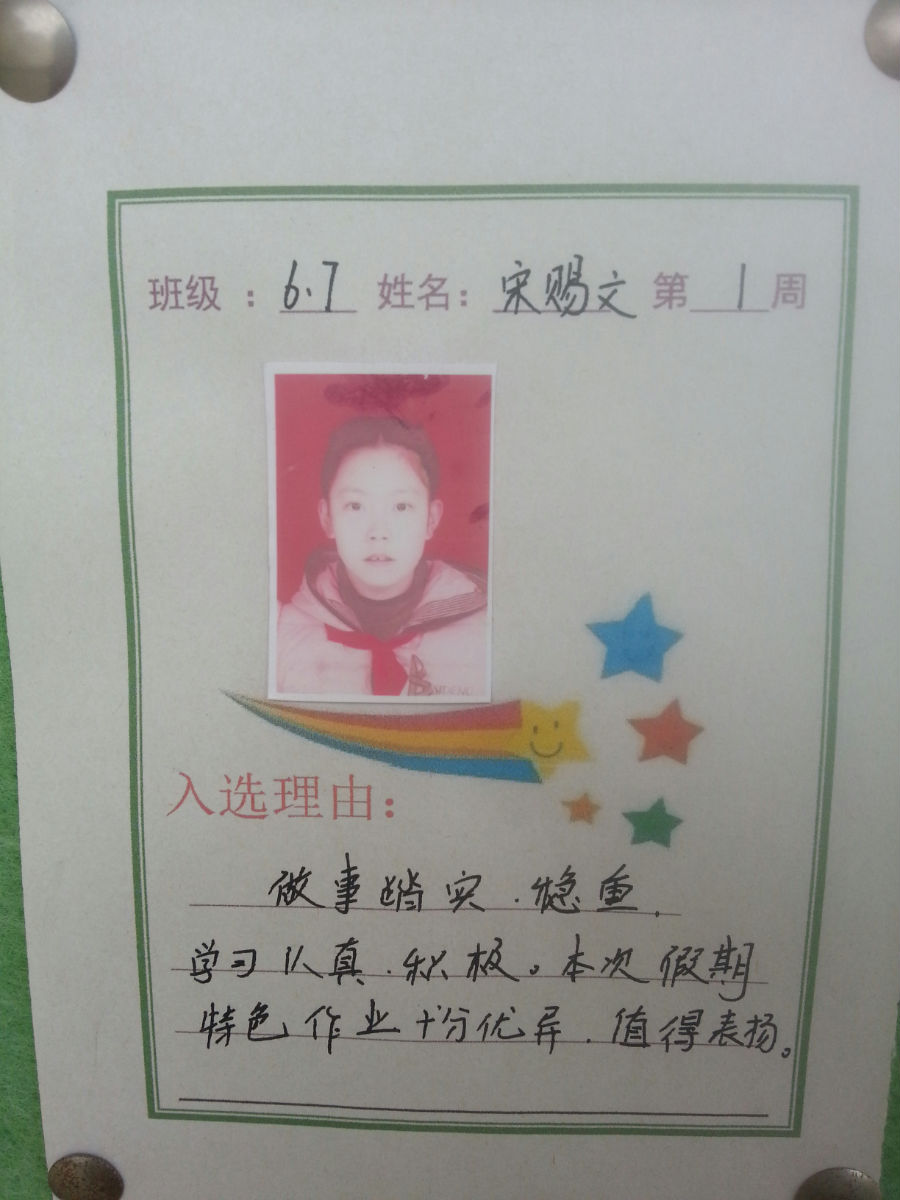 班级：6.7 姓名：宋赐文 第1周
入选理由：
做事踏实、稳重，
学习认真、积极。本次假期
特色作业十分优异、值得表扬。